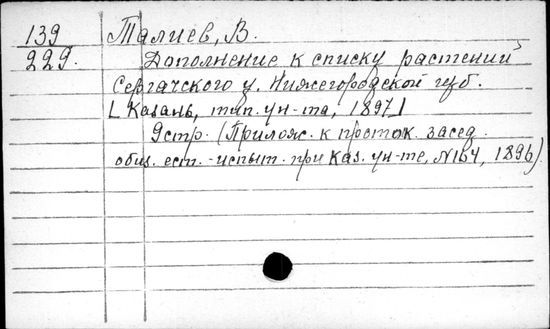 139 Талиев, В.
229. Дополнение к списку растений
Сергачского у. Нижегородской губ.
[Казань, тип. ун-та, 1897]
9стр. (Прилож. к проток. засед.
общ. ест.-испыт. при Каз. ун-те, N164, 1896).